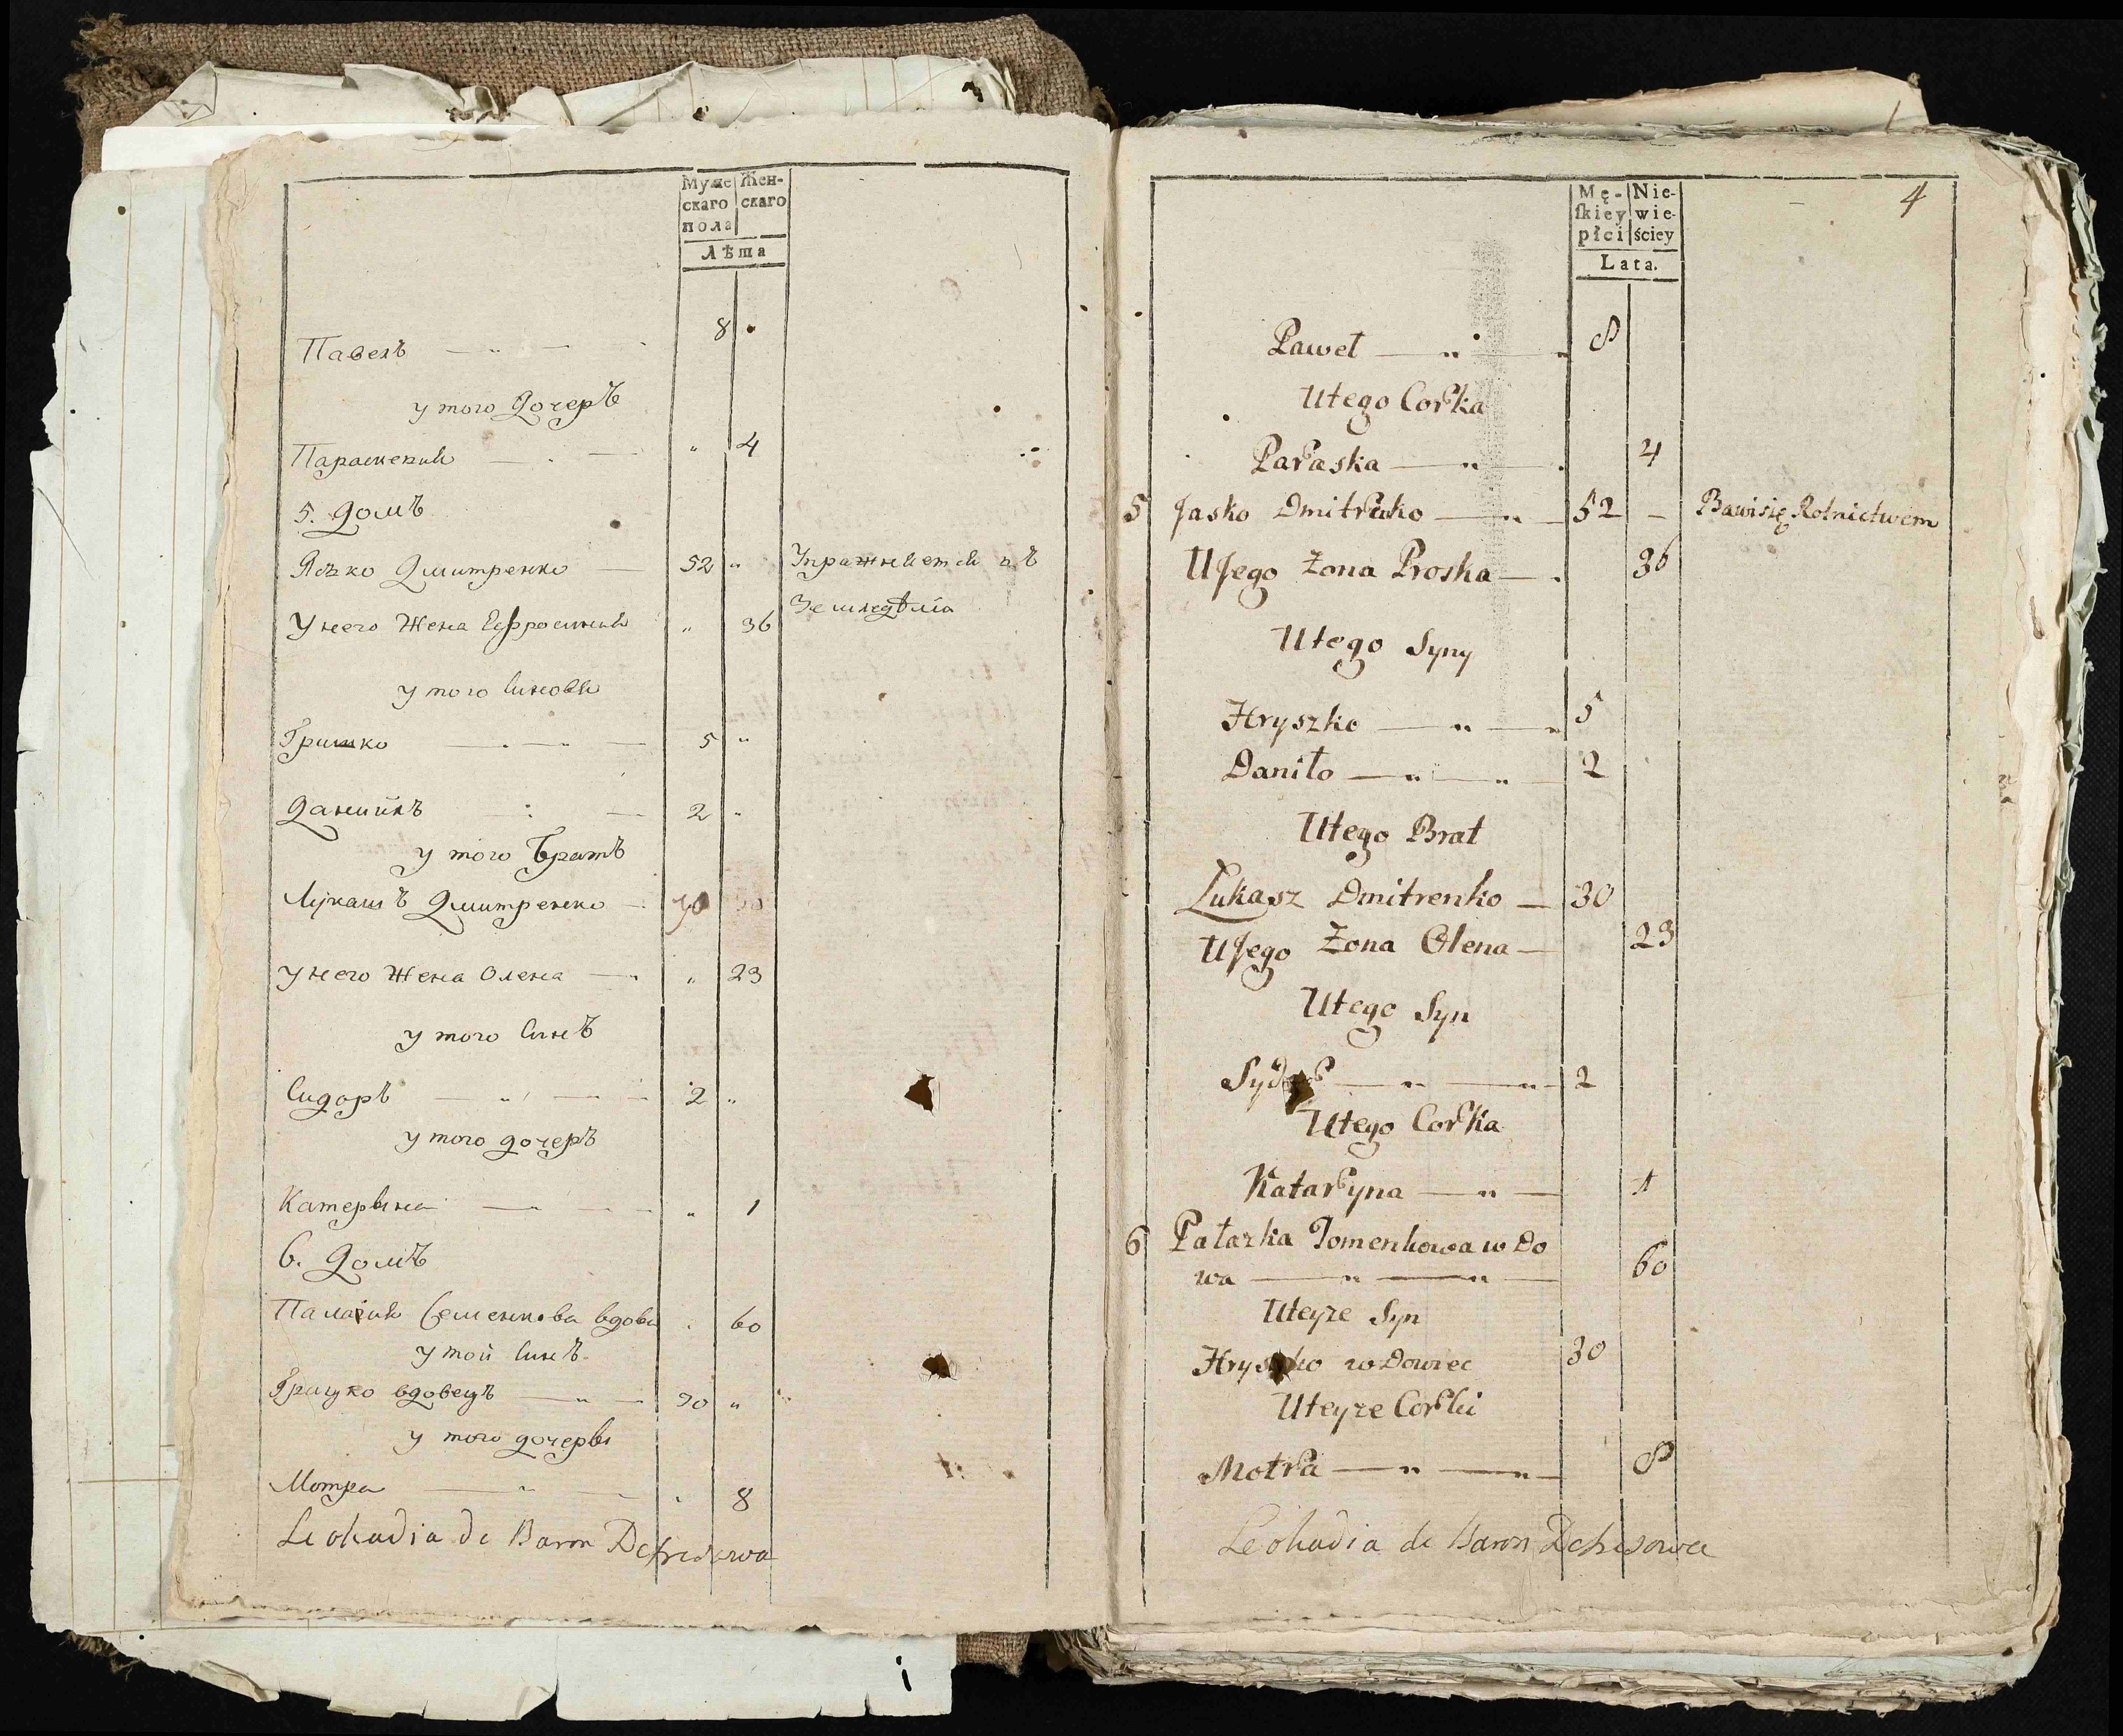 Муже Жен-
скаго скаго
пола
Лѣта
Павелъ 8
у того Дочеръ
Параскевия " 4
5. Домъ
Яско Дмитренко 52 " Упражняется въ
Земледѣлiи
У него Жена Ефросиния " 36
у того Синовя
Гришко 5 "
Данийлъ 2 "
у того Братъ
Лукашъ Дмитренко 30
у него Жена Олена " 23
у того Синъ
Сидоръ 2 "
у того дочеръ
Катерина " 1
6. Домъ
вдова 60
у той Синъ
Грицко вдовецъ 30 "
у того дочеры
Мотра 8
Leokadia de Baron
Mę- Nie-
skiey wie-
płci ściey
Lata.
4
Paweł 8
Utego Corka
Paraska 4
5 Jasko Dmitrenko 52 – Bawisię Rolnictwem
UJego Żona Proska 36
Utego Syny
Hryszko 5
Daniło 2
Utego Brat
Łukasz Dmitrenko 30
UJego Żona Olena 23
Utego Syn
Sydor 2
Utego Corka
Katarzyna 1
6 Pałazka wdo
wa 60
Uteyże Syn
Hryszko wdowiec 30
Uteyże Corki
Motra 8
Leokadia de Baron